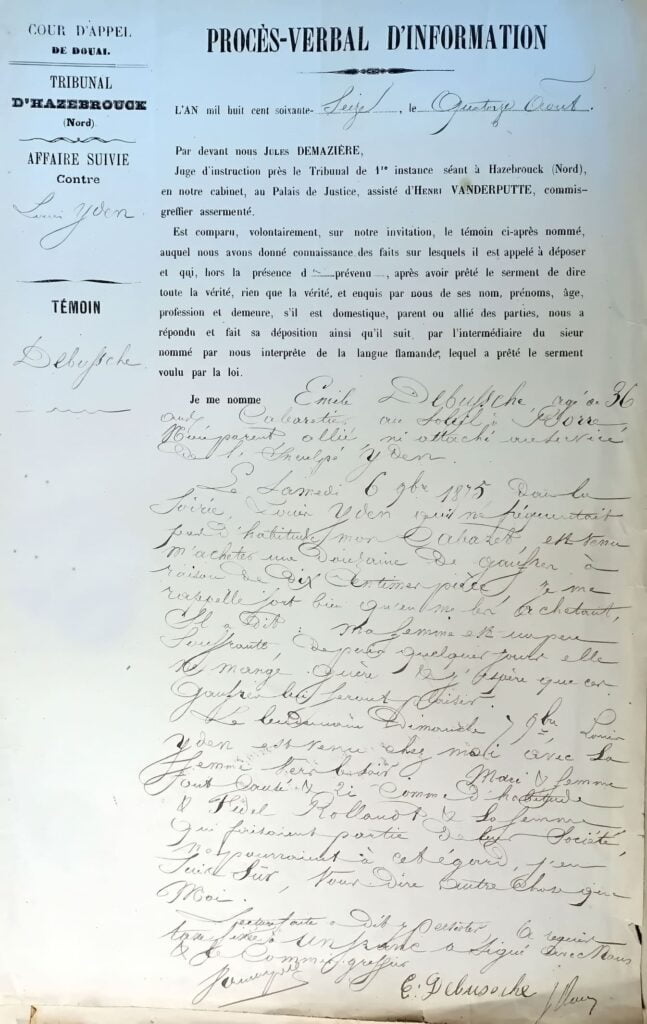 COUR D'APPEL
DE DOUAI.
TRIBUNAL
D'HAZEBROUCK
(Nord)
AFFAIRE SUIVIE
Contre
Louis Yden
TÉMOIN
Debussche
PROCÈS-VERBAL D'INFORMATION
L'AN mil huit cent soixante-Seize, le Quatorze Août.
Par devant nous JULES DEMAZIÈRE,
Juge d'instruction près le Tribunal de 1re instance séant à Hazebrouck (Nord),
en notre cabinet, au Palais de Justice, assisté d'HENRI VANDERPUTTE, commis-
greffier assermenté.
Est comparu, volontairement, sur notre invitation, le témoin ci-après nommé,
auquel nous avons donné connaissance des faits sur lesquels il est appelé à déposer
et qui, hors la présence d prévenu, après avoir prêté le serment de dire
toute la vérité, rien que la vérité, et enquis par nous de ses nom, prénoms, âge,
profession et demeure, s'il est domestique, parent ou allié des parties, nous a
répondu et fait sa déposition ainsi qu'il suit par l'intermédiaire du sieur
nommé par nous interprète de la langue flamande, lequel a prêté le serment
voulu par la loi.
Je me nomme Emile Debussche, agé de 36
ans, Cabaretier au Soleil à Borre,
Ni parent allié, ni attaché au service
de l'Inculpé Yden.
Le Samedi 6 9bre 1875 Dans la
Soirée, Louis Yden qui ne fréquentait
pas d'habitude mon Cabaret, est venu
m'acheter une Douzaine de gaufres à
raison de Dix Centimes pièce, je me
rappelle fort bien qu'en me les achetant,
Il a Dit : ma femme est un peu
Souffrante, Depuis quelques jours elle
ne mange guère & j'espère que ces
gaufres lui feront plaisir.
Le lendemain Dimanche 7 9bre Louis
Yden est venu chez moi avec Sa
femme Vers le soir. Mari & femme
ont Causé & Ri Comme d'habitude
& Fidel Rollandt & Sa femme
qui faisaient partie de leur Société,
ne pourraient à cet égard, j'en
Suis Sûr, Vous Dire autre Chose que
Moi.
Lecture faite a Dit y persister & requis
taxe fixé à un franc a Signé avec Nous
& le Commis greffier
E. Debussche